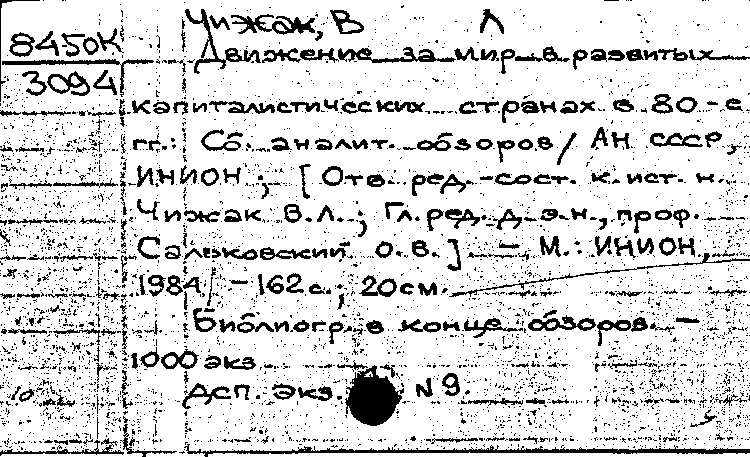 Чижак, В Л
8450к
3094
Движение за мир в развитых
капиталистических странах в 80-е
гг.: Сб. аналит. обзоров / АН СССР,
ИНИОН; [Отв. ред.-сост. к. ист. н.
Чижак В.Л.; Гл. ред. д.э.н., проф.
Сальковский О.В.]. – М.: ИНИОН,
1984. – 162 с.; 20см.
Библиогр. в конце обзоров. –
1000 экз
ДСП. Экз. N 9.
10